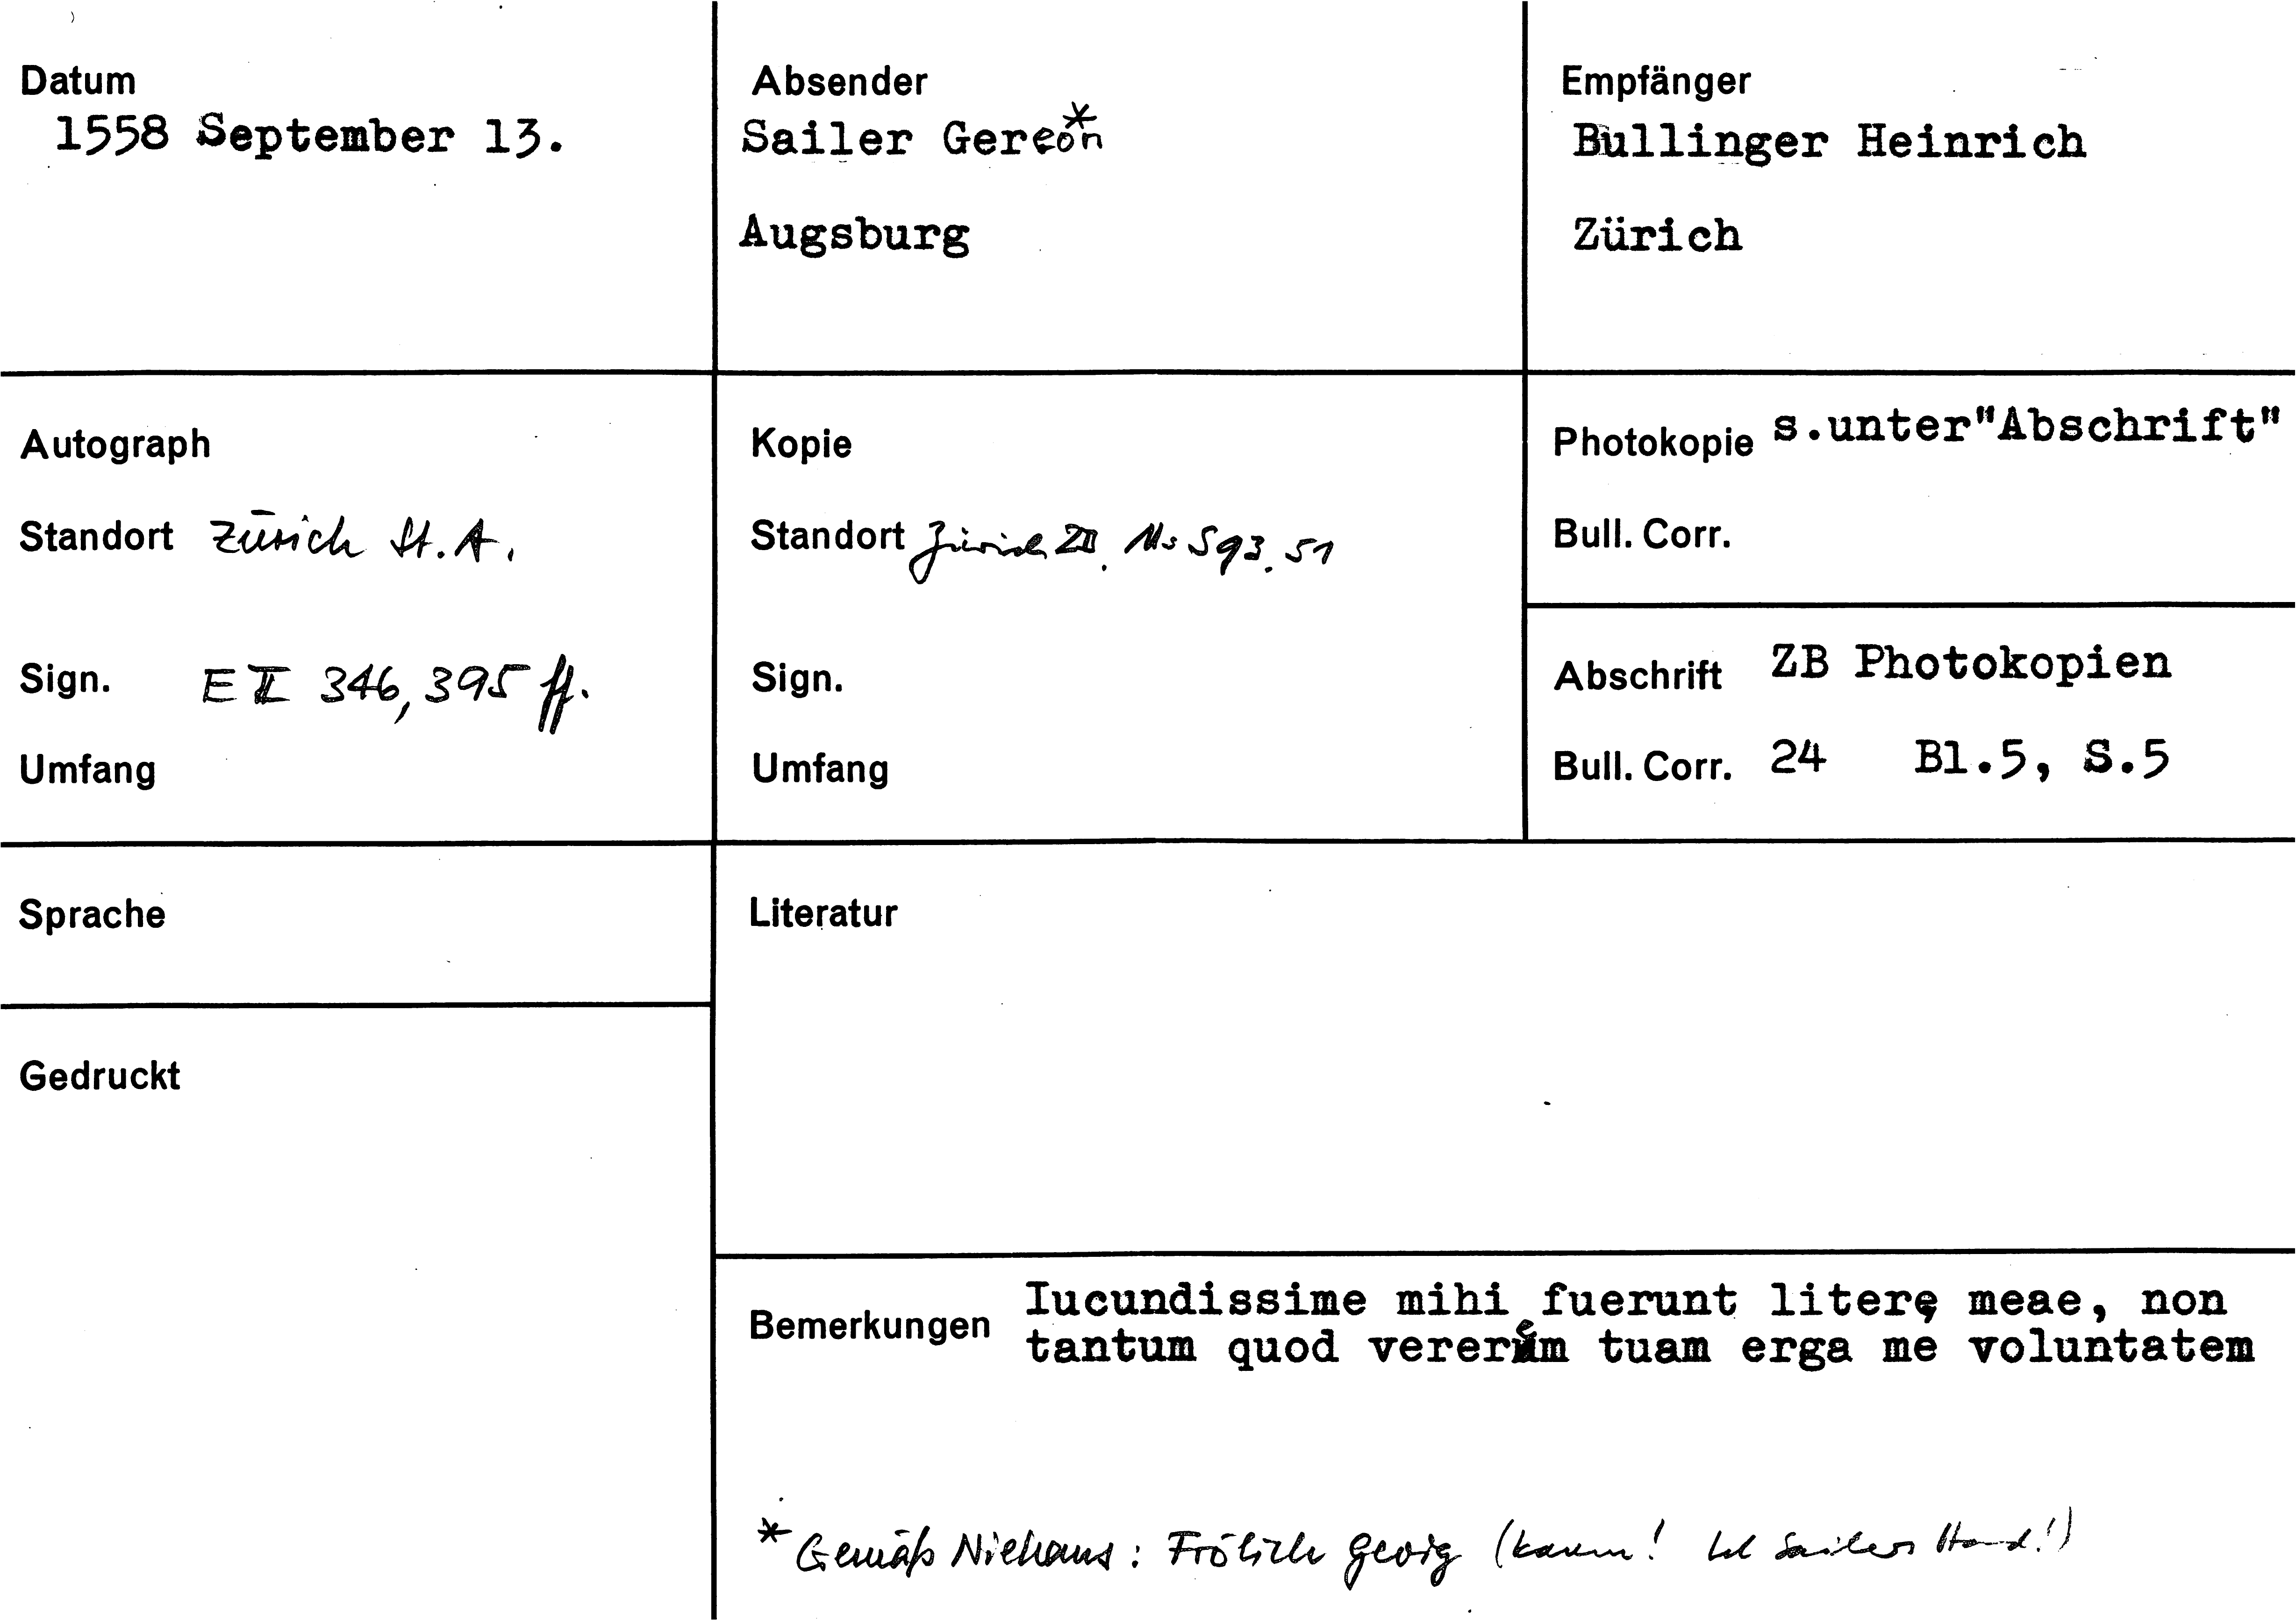 Datum
1558 September 13.
Absender
Sailer Gereon*
Augsburg
Empfänger
Bullinger Heinrich
Zürich
Autograph
Standort Zürich St. A.
Sign. E II 346, 395 ff.
Umfang
Kopie
Standort Zürich ZB. Ms S 93. 51
Sign.
Umfang
Photokopie s.unter"Abschrift"
Bull. Corr.
Abschrift ZB Photokopien
Bull. Corr. 24 Bl.5, S.5
Sprache
Gedruckt
Literatur
Bemerkungen Iucundissime mihi fuerunt literę meae, non
tantum quod vererem tuam erga me voluntatem
* Gemäß Niehans: Frölich Georg (kaum! Ist Sailers Hand!)